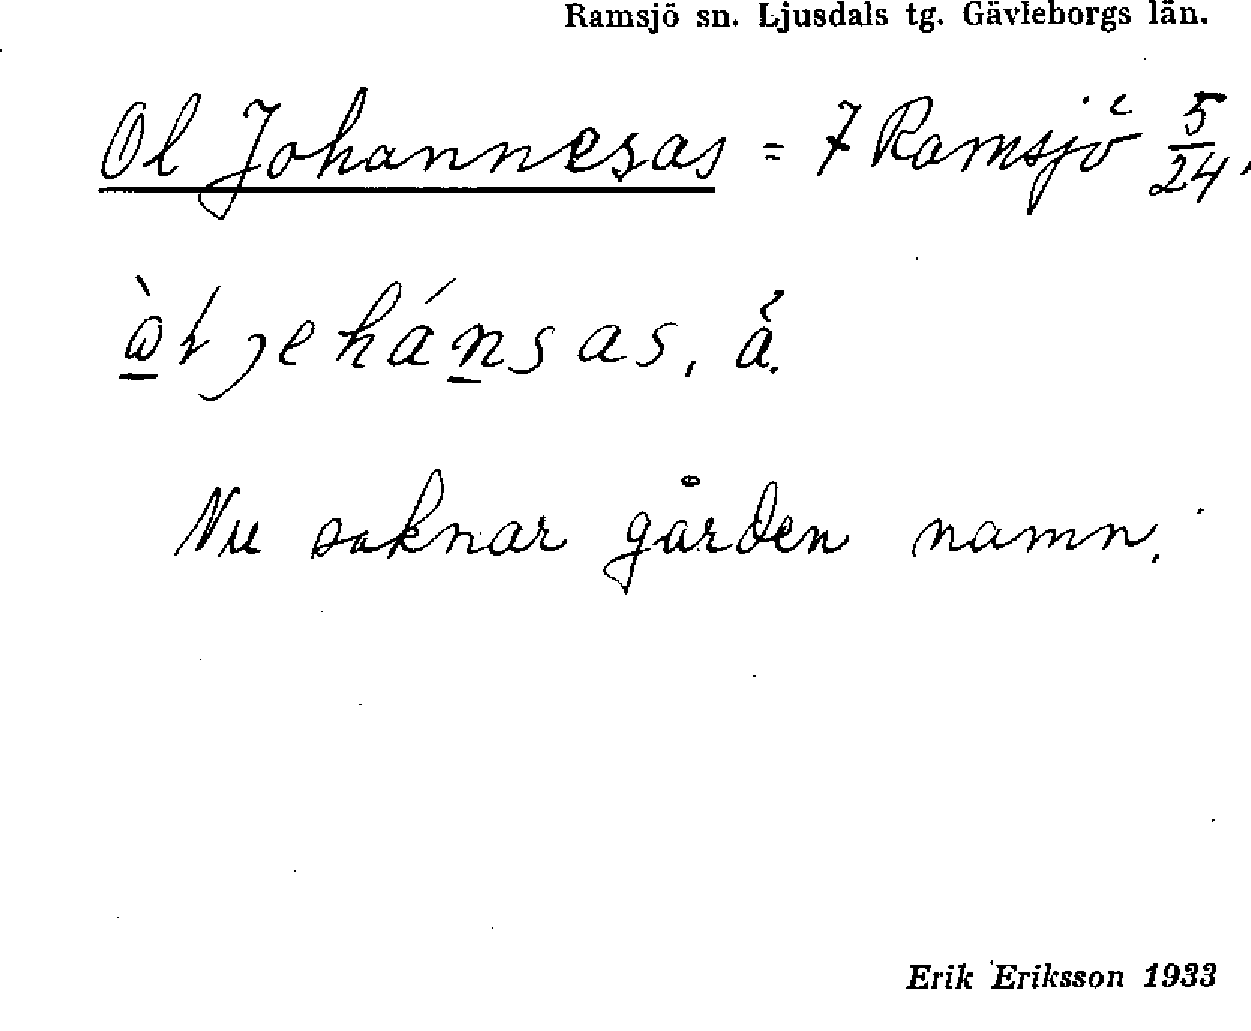 Ramsjö sn. Ljusdals tg. Gävleborgs län.
Ol Johannesas = 7 Ramsjö 5/24.
jehánsas, å.
Nu saknar gården namn.
Erik Eriksson 1933